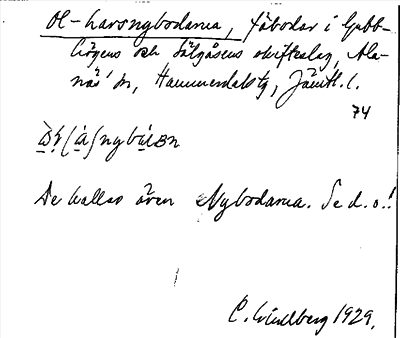 Ol-Larsnybodarna, fäbodar i Gubb-
högens och Sälgåsens skifteslag, Ala-
näs sn, Hammerdals tg, Jämtl. l.
74
De kallas även Nybodarna. Se d. o.!
C. Lindberg 1929.